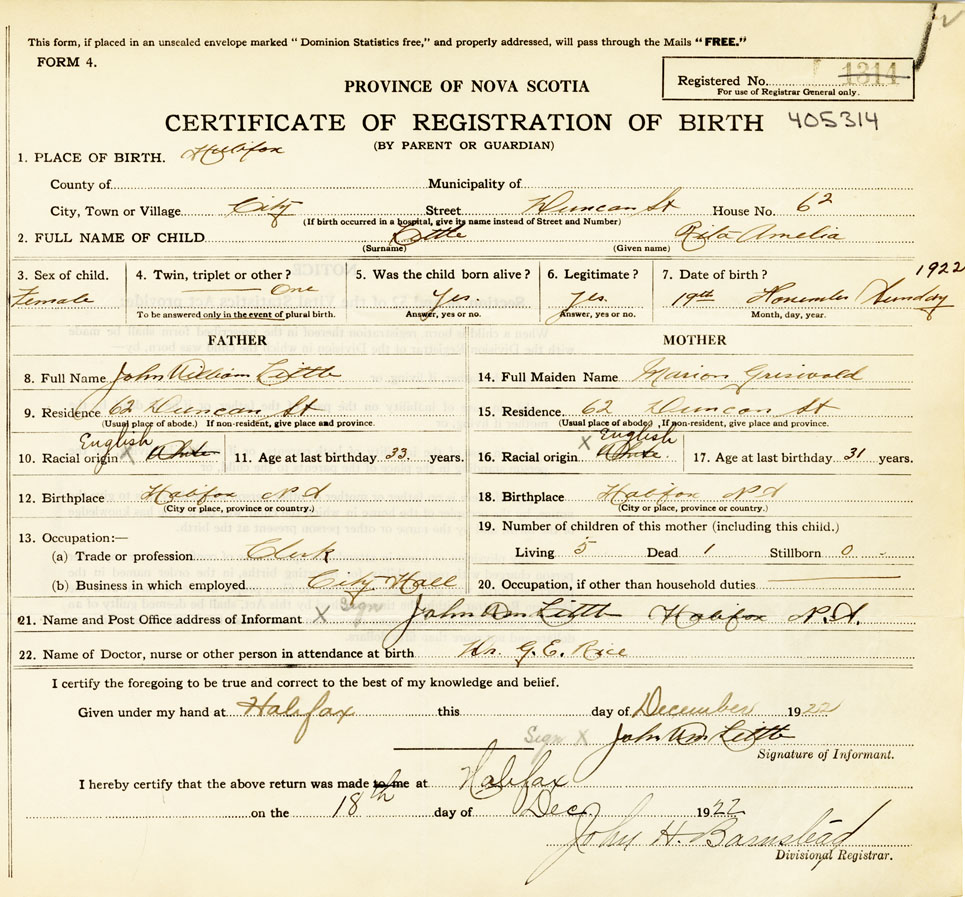 This form, if placed in an unsealed envelope marked "Dominion Statistics free," and properly addressed, will pass through the Mails "FREE."
FORM 4.
Registered No. 1314
For use of Registrar General only.
PROVINCE OF NOVA SCOTIA
CERTIFICATE OF REGISTRATION OF BIRTH 405314
(BY PARENT OR GUARDIAN)
1. PLACE OF BIRTH. Halifax
County of Municipality of
City, Town or Village City Street Duncan St House No. 62
(If birth occurred in a hospital, give its name instead of Street and Number)
2. FULL NAME OF CHILD Little Rita Amelia
(Surname) (Given name)
3. Sex of child. 4. Twin, triplet or other? 5. Was the child born alive? 6. Legitimate? 7. Date of birth? 1922
Female One Yes. Yes. 19th November Sunday
To be answered only in the event of plural birth. Answer, yes or no. Answer, yes or no. Month, day, year.
FATHER MOTHER
8. Full Name John William Little 14. Full Maiden Name Marion Griswald
9. Residence 62 Duncan St 15. Residence. 62 Duncan St
(Usual place of abode.) If non-resident, give place and province. (Usual place of abode) If non-resident, give place and province.
English English
10. Racial origin X White 11. Age at last birthday 33. years. 16. Racial origin X White. 17. Age at last birthday 31 years.
12. Birthplace Halifax N S 18. Birthplace Halifax N S
(City or place, province or country.) (City or place, province or country.)
13. Occupation:— 19. Number of children of this mother (including this child.)
(a) Trade or profession Clerk Living 5 Dead 1 Stillborn 0
(b) Business in which employed City Hall 20. Occupation, if other than household duties
21. Name and Post Office address of Informant X Sign John Wm Little Halifax N.S.
22. Name of Doctor, nurse or other person in attendance at birth Dr. G.E. Rice
I certify the foregoing to be true and correct to the best of my knowledge and belief.
Given under my hand at Halifax this day of December 1922
Sign X John Wm Little
Signature of Informant.
I hereby certify that the above return was made to me at Halifax
on the 18th day of Dec. 1922
John H. Barnstead
Divisional Registrar.